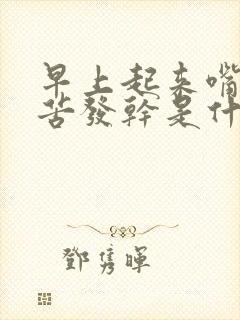 早上起来嘴
苦發幹是什
鄧雋暉